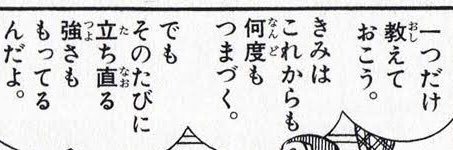 一つだけ
教えて
おこう。
きみは
これからも
何度も
つまづく。
でも
そのたびに
立ち直る
強さも
もってる
んだよ。